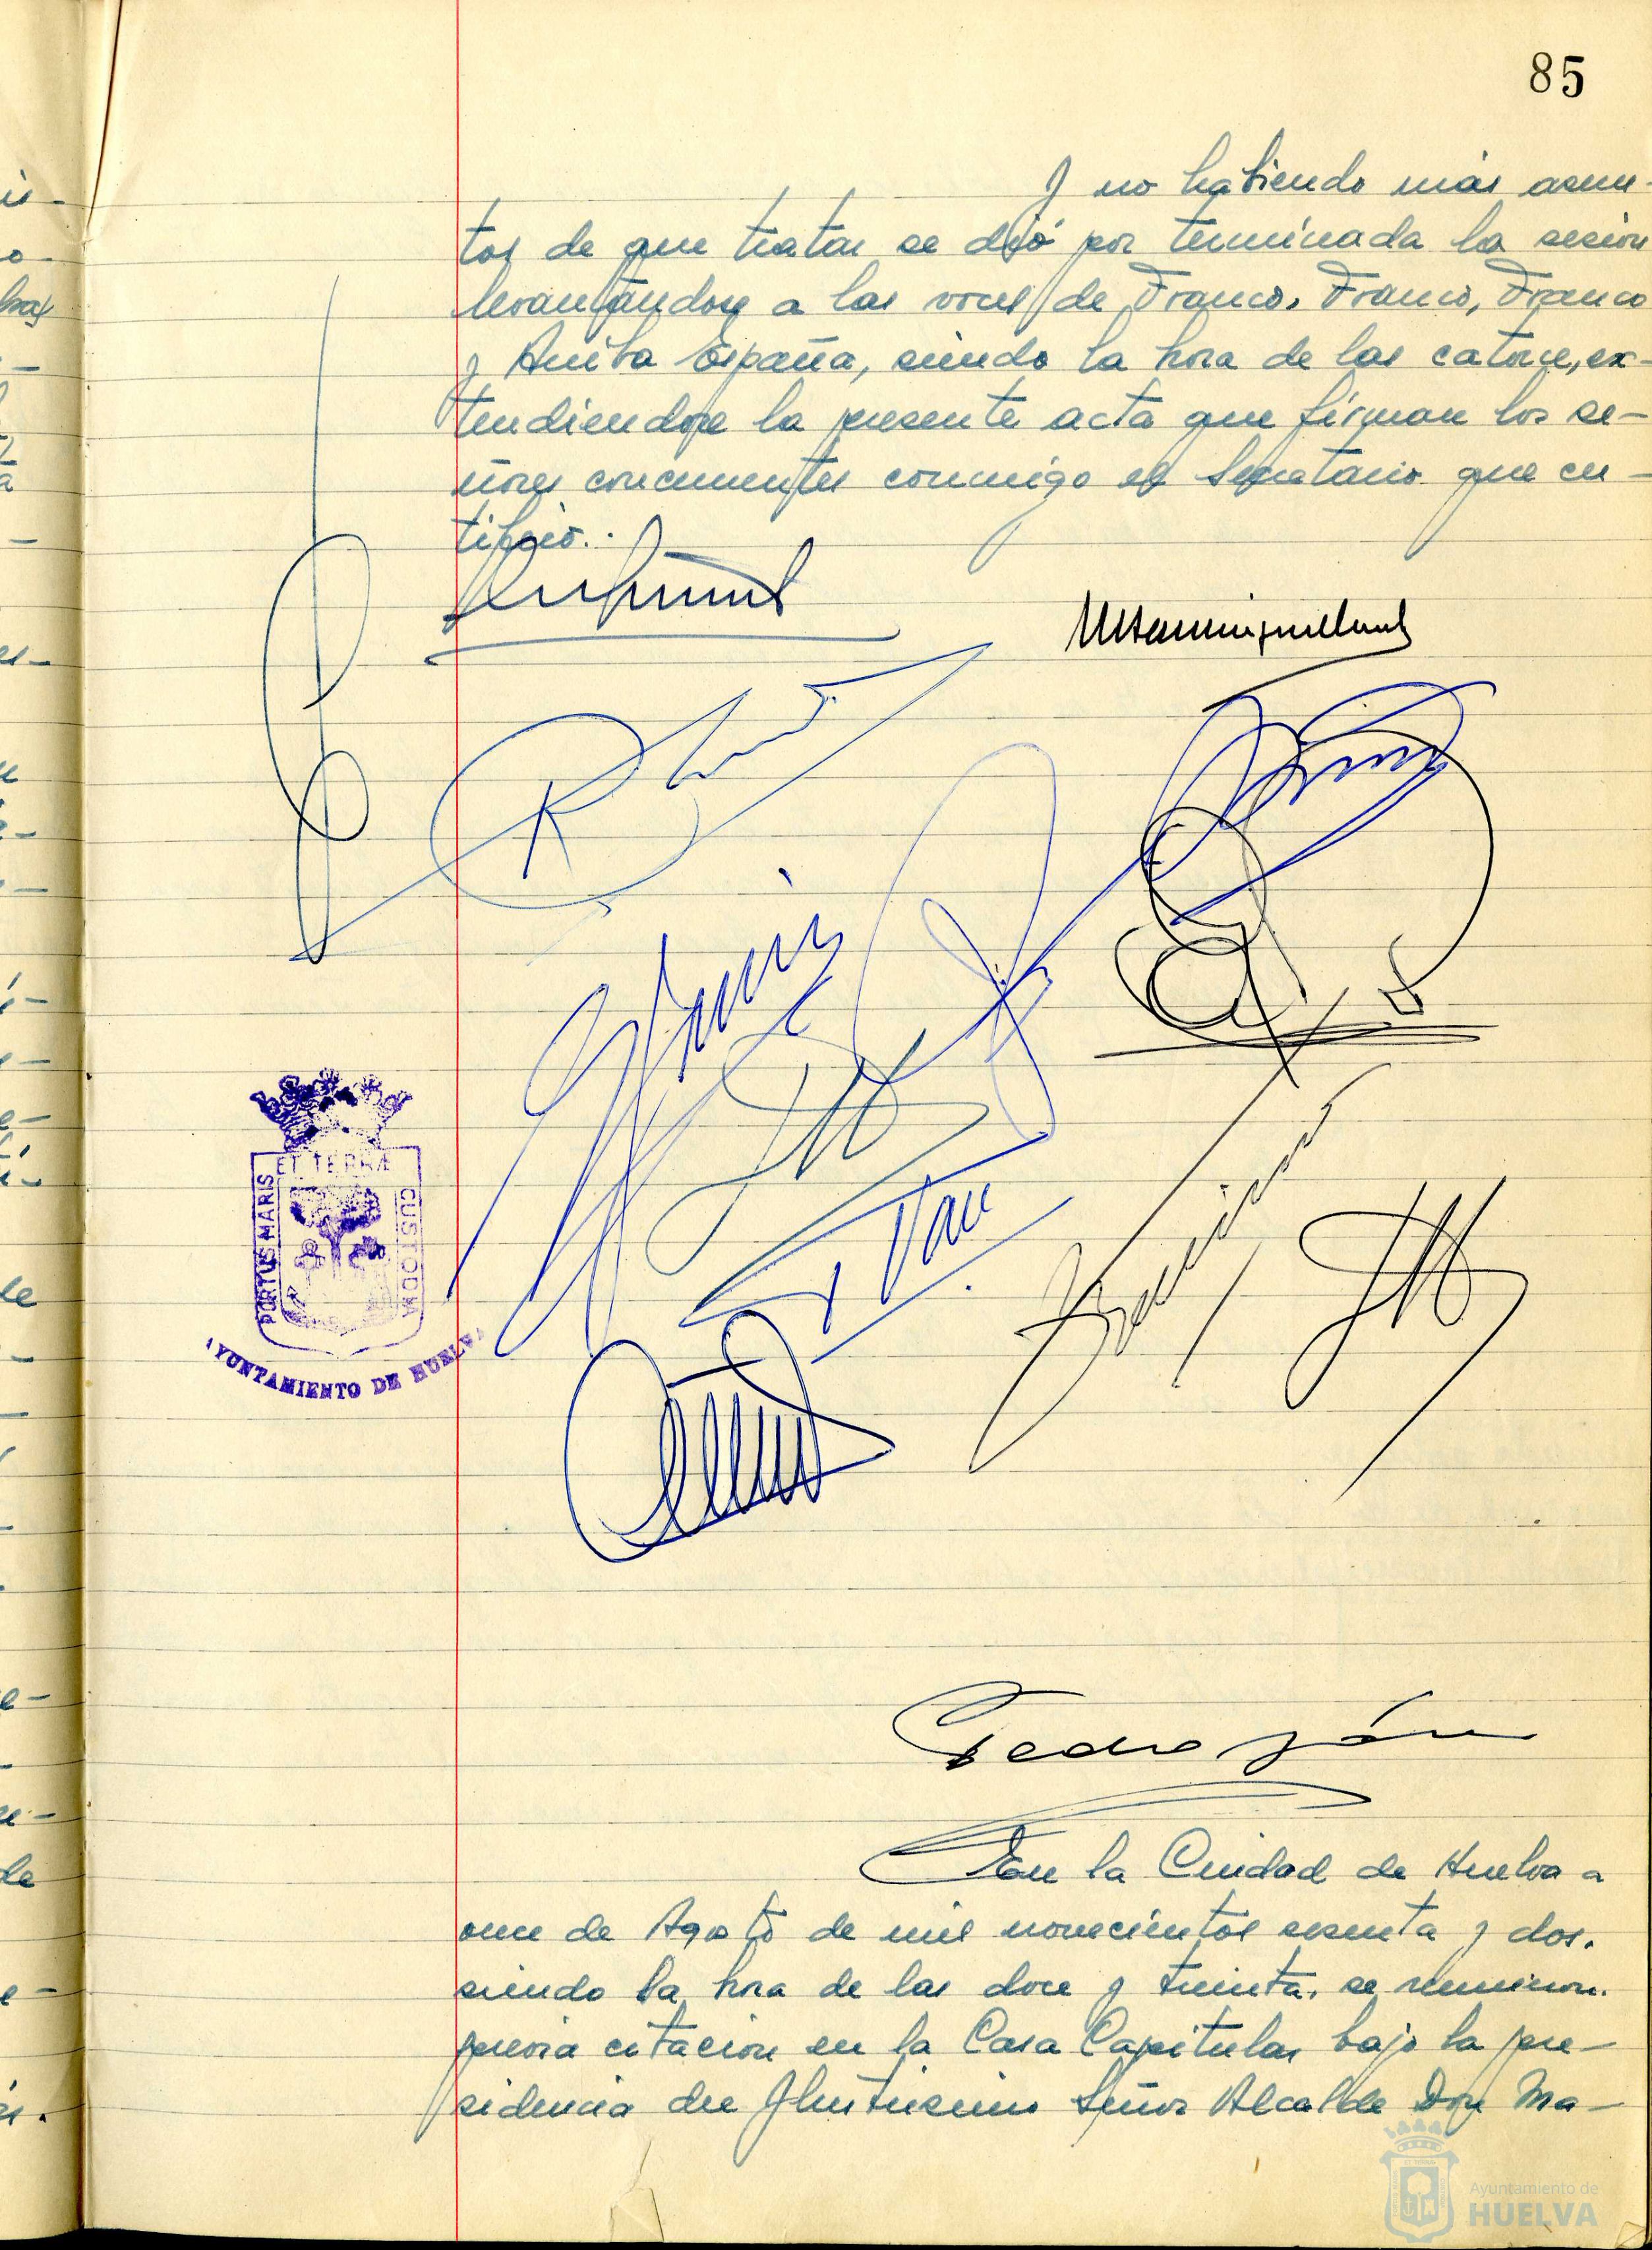 85
Y no habiendo más asun-
tos de que tratar se dió por terminada la sesión
levantándose a las voces de Franco, Franco, Franco
y Arriba España, siendo la hora de las catorce, ex-
tendiendose la presente acta que firman los se-
ñores concurrentes conmigo el Secretario que cer-
tifico.
PORTUS MARIS
ET TERRÆ
CUSTODIA
AYUNTAMIENTO DE HUELVA
Pedro
En la Ciudad de Huelva a
once de Agosto de mil novecientos sesenta y dos,
siendo la hora de las doce y treinta, se reunieron,
previa citación en la Casa Capitular bajo la pre-
sidencia del Ilustrisimo Señor Alcalde Don Ma-
Ayuntamiento de
HUELVA